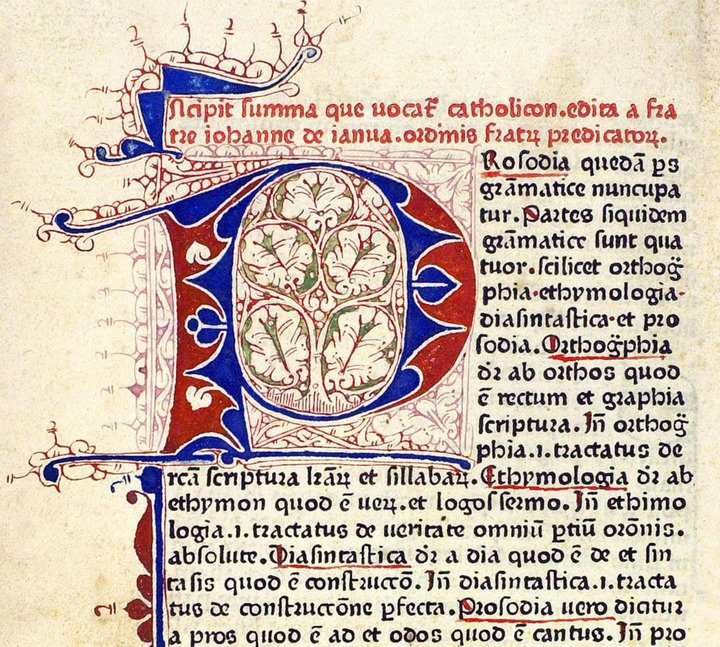 Incipit summa que uocat᷑ catholicon.edita a fra
tre iohanne de ianua.ordinis fratꝝ predicatoꝝ.
PRosodia quedā p̄s
grāmatice nuncupa
tur. Partes siquidem
grāmatice sunt qua
tuor.scilicet orthog̈
phia.ethymologia.
diasintastica.et pro
sodia.Orthog̈phia
dr̄ ab orthos quod
ē rectum et graphia
scriptura. Jn̄ orthog̈
phia.i.tractatus de
rcā scriptura lrāꝝ et sillabaꝝ.Ethymologia dr̄ ab
ethymon quod ē ueꝝ.et logos sermo. Jn̄ ethimo
logia.i.tractatus de ueritate omniū ꝑtiū orōnis.
absolute.Diasintastica dr̄ a dia quod ē de et sin
tasis quod ē constructō. Jn̄ diasintastica.i.tracta
tus de constructōne ꝑfecta.Prosodia uero dicitur
a pros quod ē ad et odos quod ē cantus. Jn̄ pro